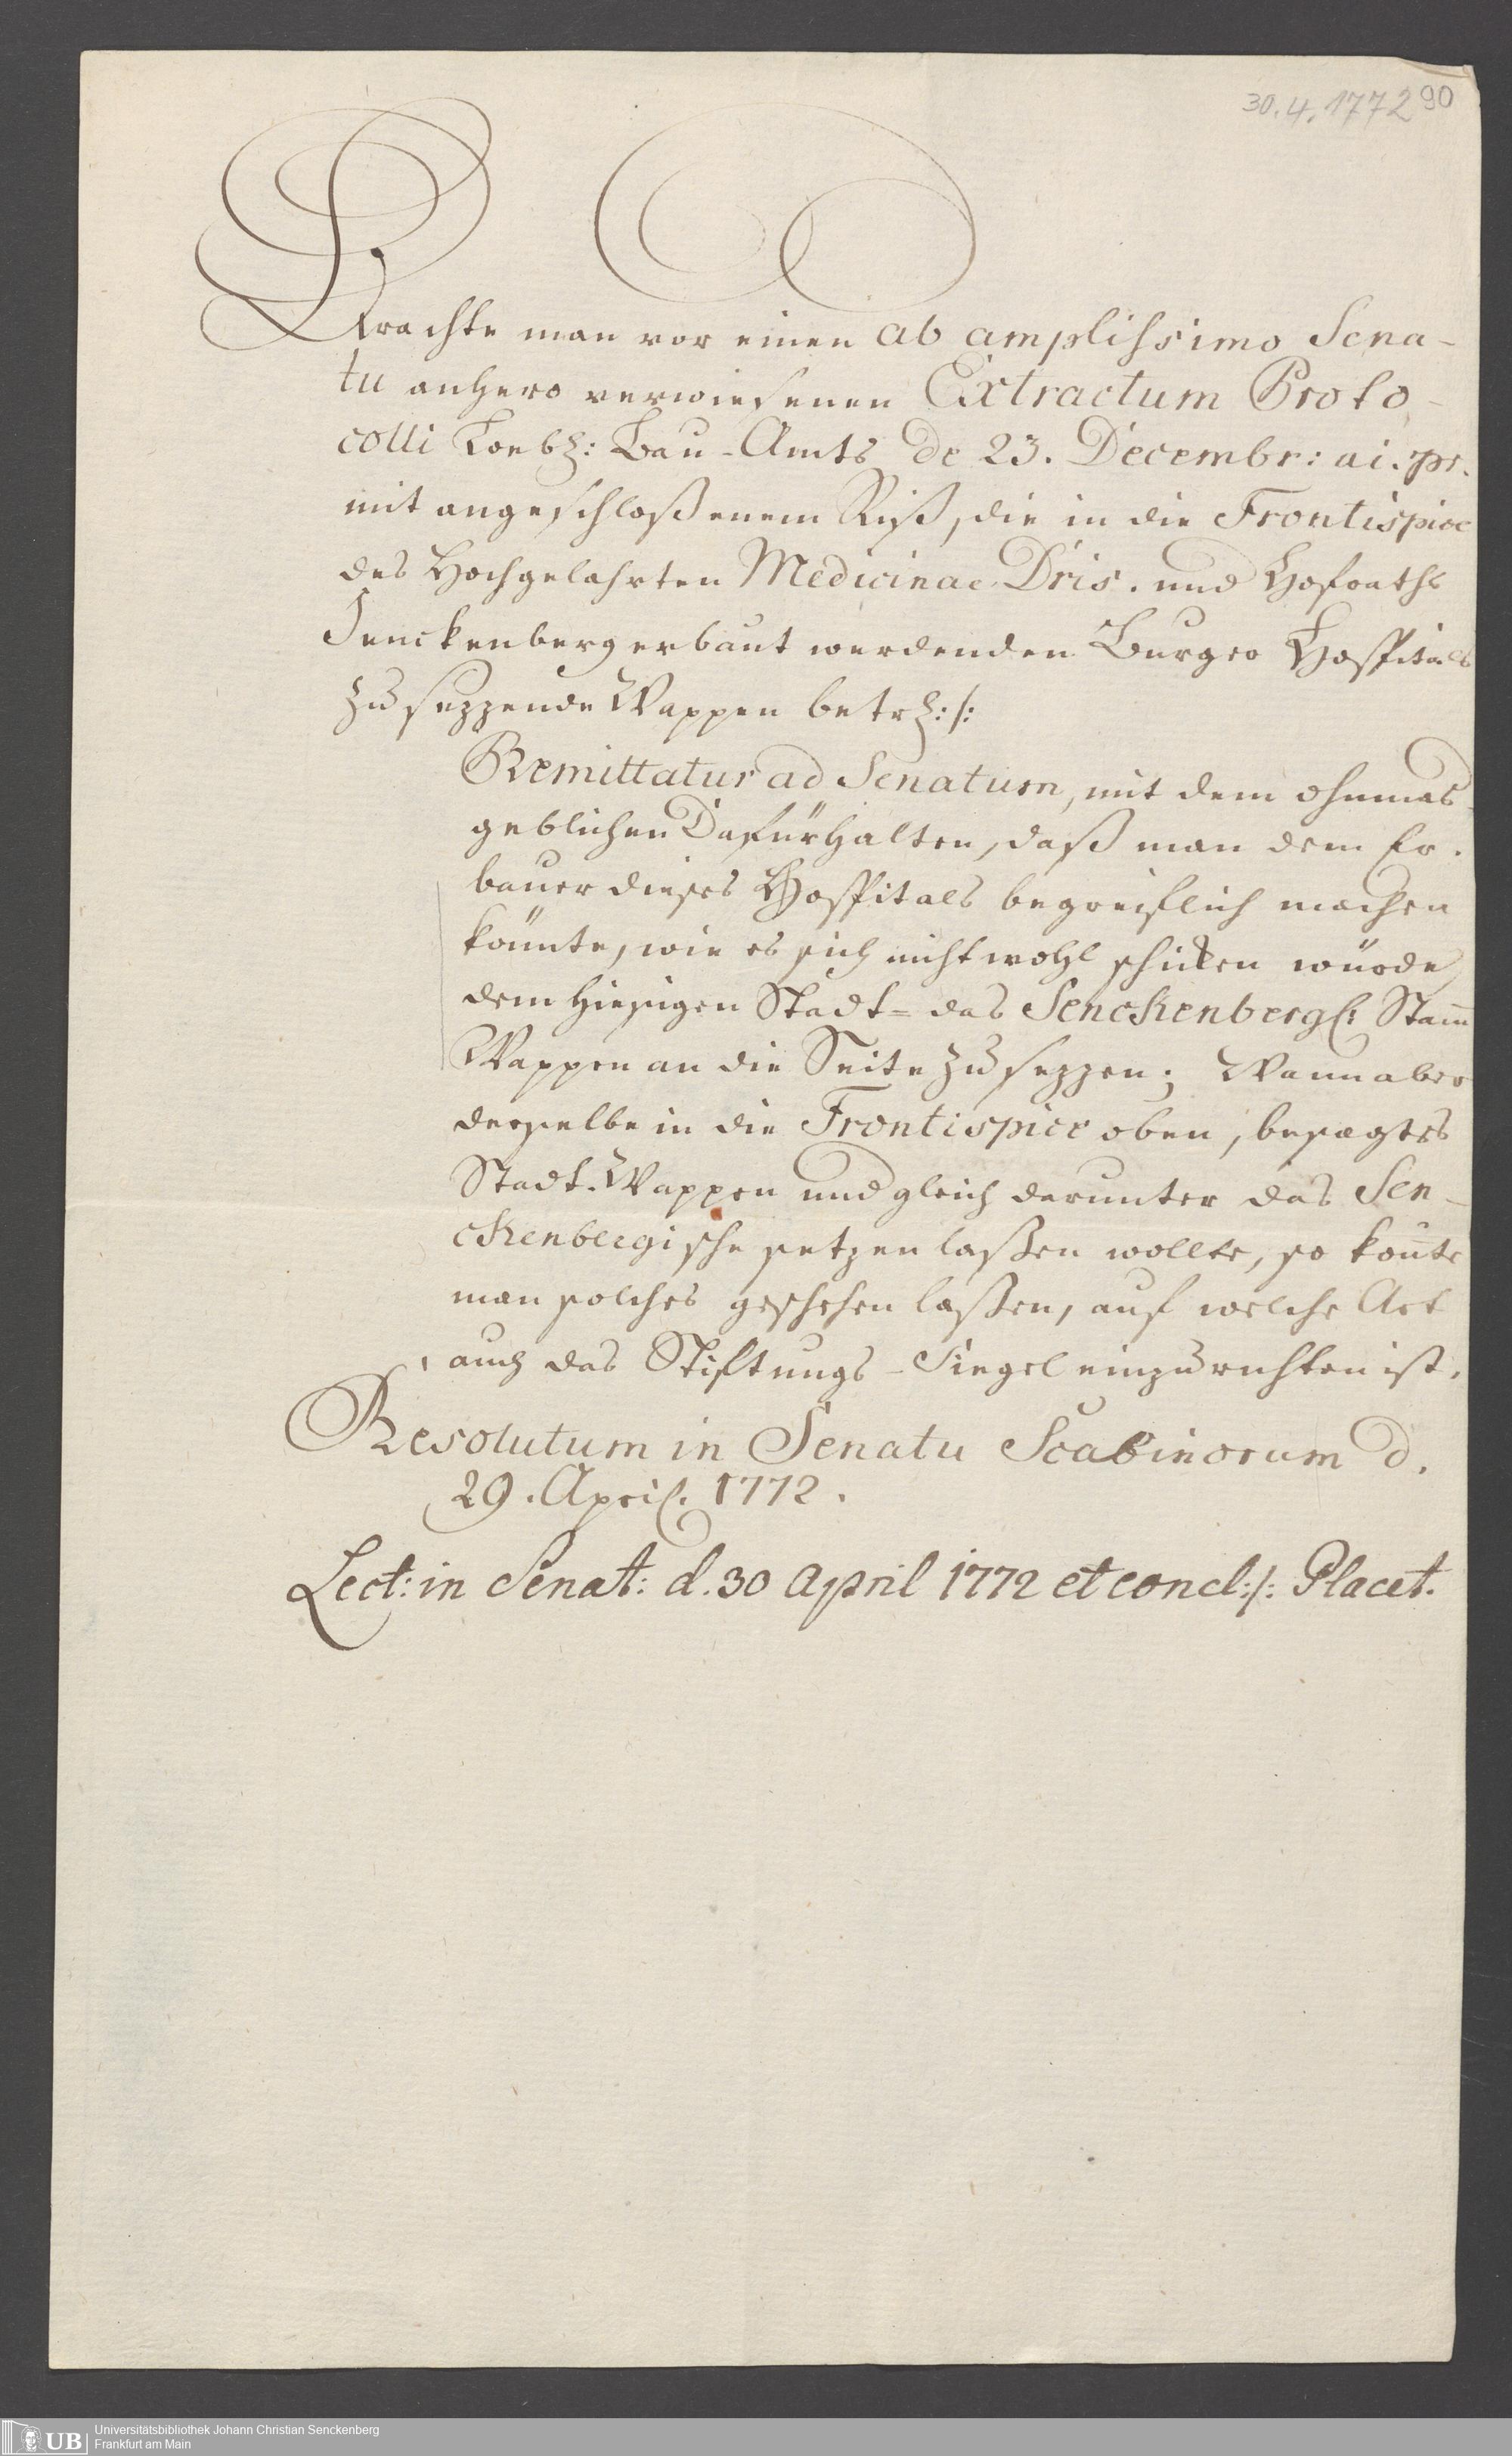 30.4.1772 90
Brachte man vor einen ab amplissimo Sena-
tu anhero verwiesenen Extractum Proto-
colli Löbl: Bau-Amts de 23. Decembr: ai. pr.
mit angeschloßenem Riß, die in die Frontispice
des Hochgelahrten Medicinae Dris. und Hofraths
Senckenberg erbaut werdenden Burger Hospitals
zu sezzende Wappen betrl: /:
Remittatur ad Senatum, mit dem ohnmas-
geblichen Dafürhalten, daß man dem Er-
bauer dieses Hospitals begreiflich machen
könnte, wie es sich nicht wohl schicken würde,
dem hiesigen Stadt- das Senckenbergl: Stam̅
Wappen an die Seite zu sezzen; Wann aber
derselbe in die Frontispice oben, besagtes
Stadt-Wappen und gleich darunter das Sen-
ckenbergische setzen laßen wollte, so kön̅te
man solches geschehen laßen, auf welche Art
auch das Stiftungs-Siegel einzurichten ist.
Resolutum in Senatu Scabinorum d.
29. April. 1772.
Lect: in Senat: d. 30 April 1772 et concl: /: Placet.
UB
Universitätsbibliothek Johann Christian Senckenberg
Frankfurt am Main